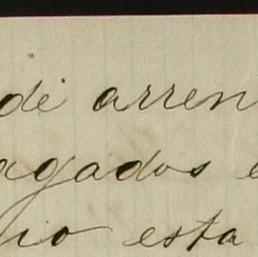 de arren
agados e
io esta